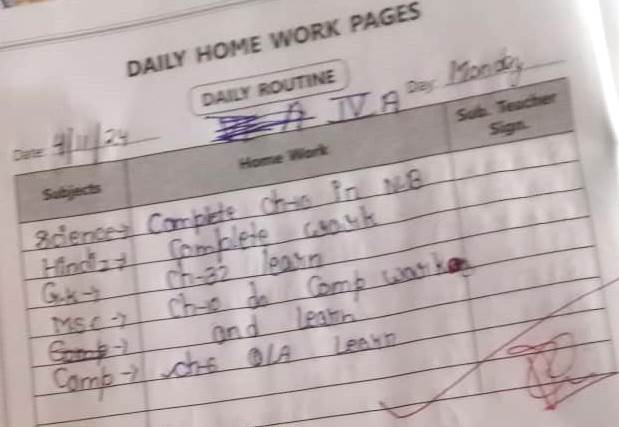 DAILY HOME WORK PAGES
DAILY ROUTINE
Date: 4/11/24 IV A Day: Monday
Subjects Home Work Sub. Teacher Sign.
Science → Complete ch-10 in NB
Hindi → Complete
G.K → ch-27 learn
MSC → Ch-10 do Comp wark
and learn
Comp → ch-6 Q/A Learn